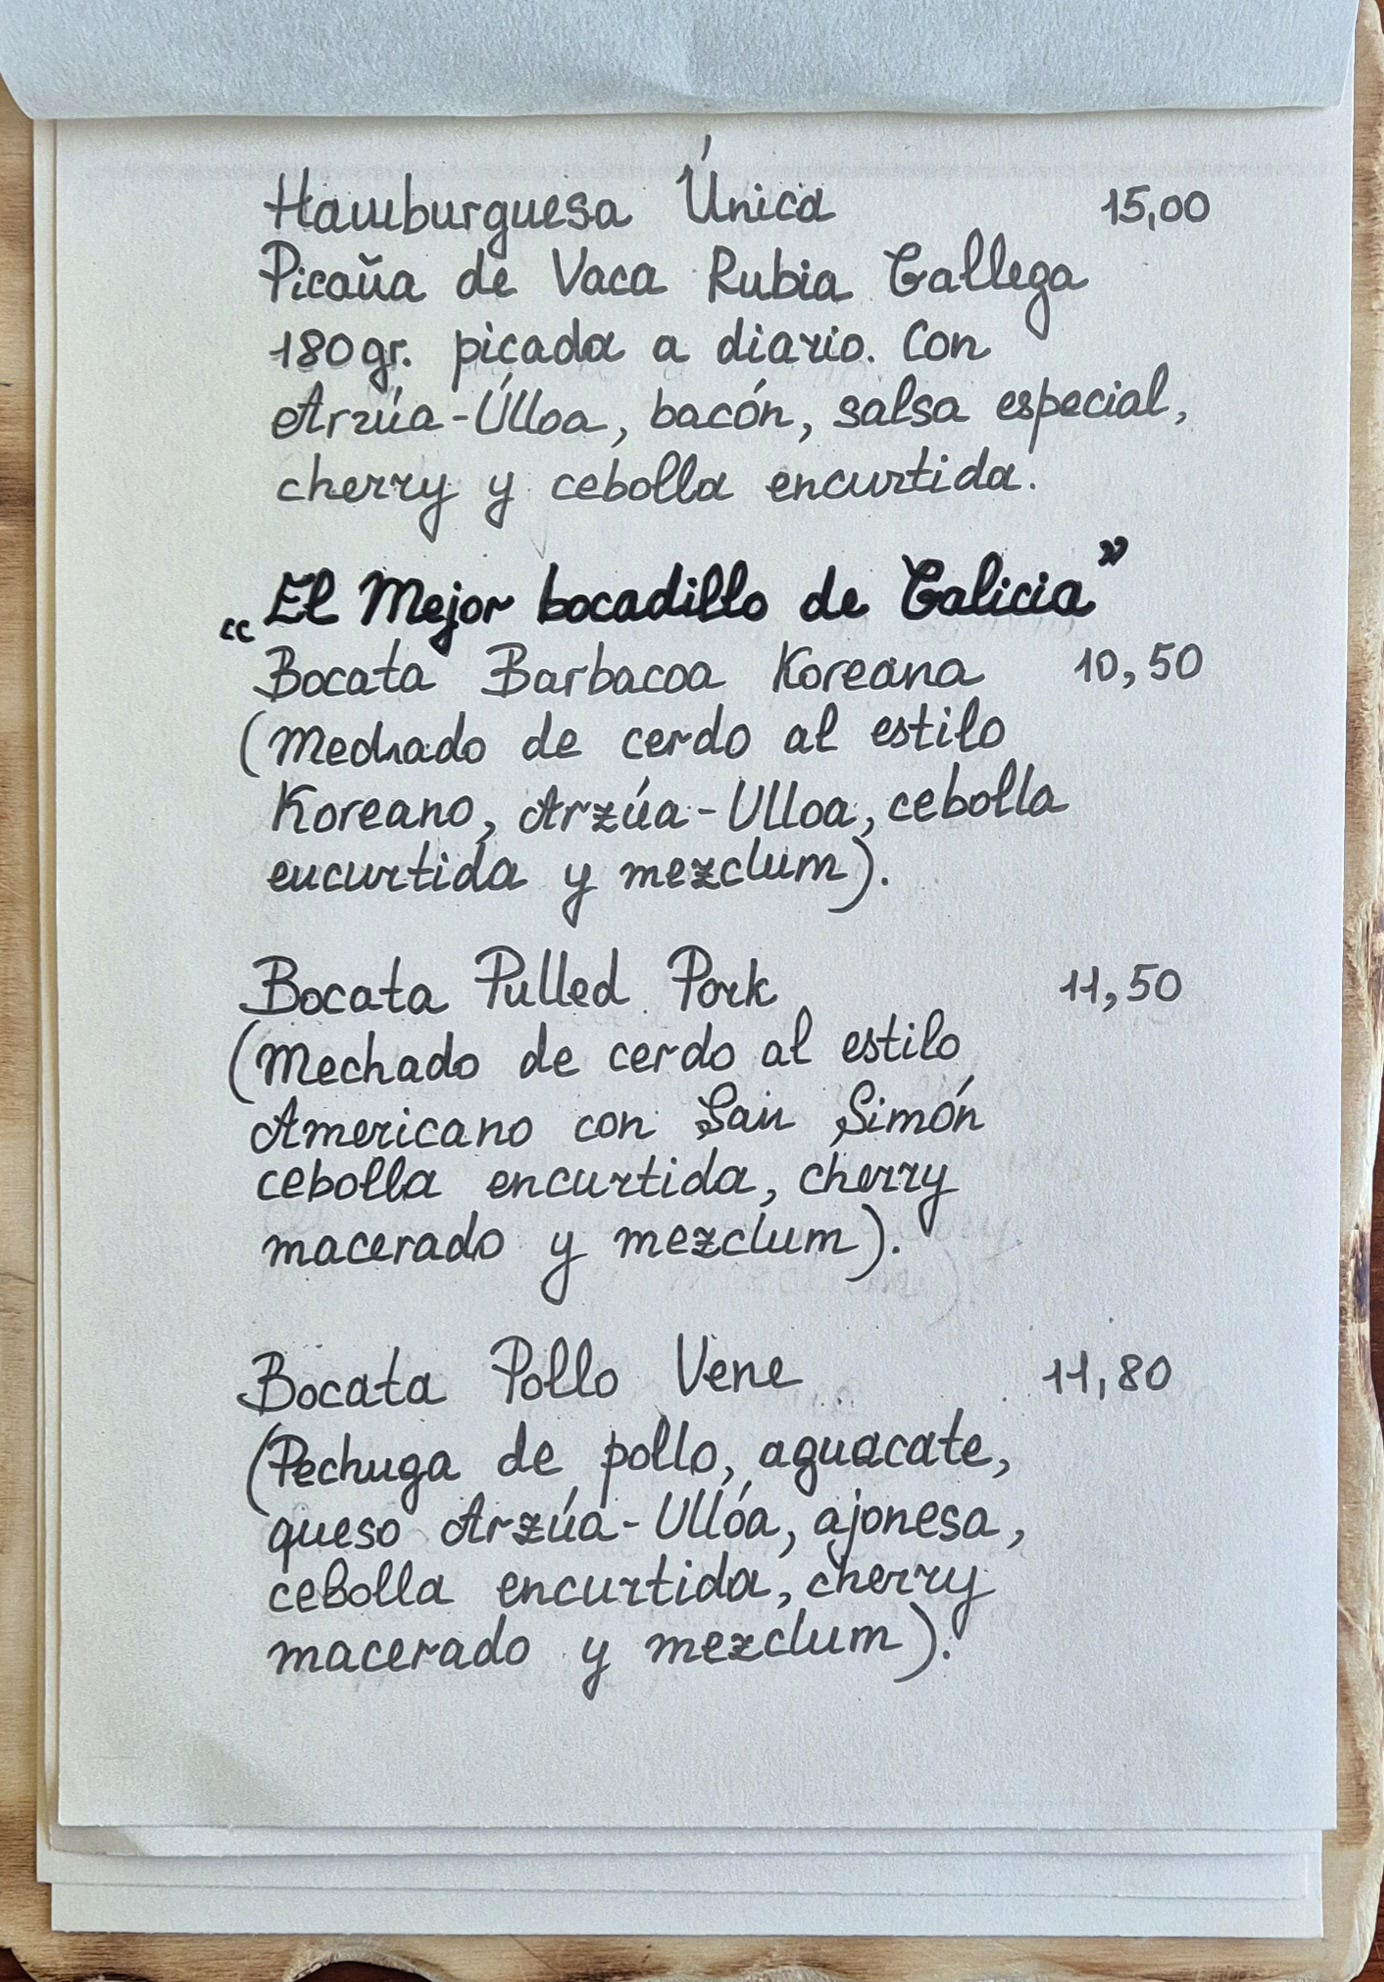 Hamburguesa Única 15,00
Picaña de Vaca Rubia Gallega
180gr. picada a diario. Con
Arzúa-Úlloa, bacón, salsa especial,
cherry y cebolla encurtida.
„El Mejor bocadillo de Galicia”
Bocata Barbacoa Koreana 10,50
(Mechado de cerdo al estilo
Koreano, Arzúa-Ulloa, cebolla
encurtida y mezclum).
Bocata Pulled Pork 11,50
(Mechado de cerdo al estilo
Americano con San Simón
cebolla encurtida, cherry
macerado y mezclum).
Bocata Pollo Vene 11,80
(Pechuga de pollo, aguacate,
queso Arzúa-Ullóa, ajonesa,
cebolla encurtida, cherry
macerado y mezclum).